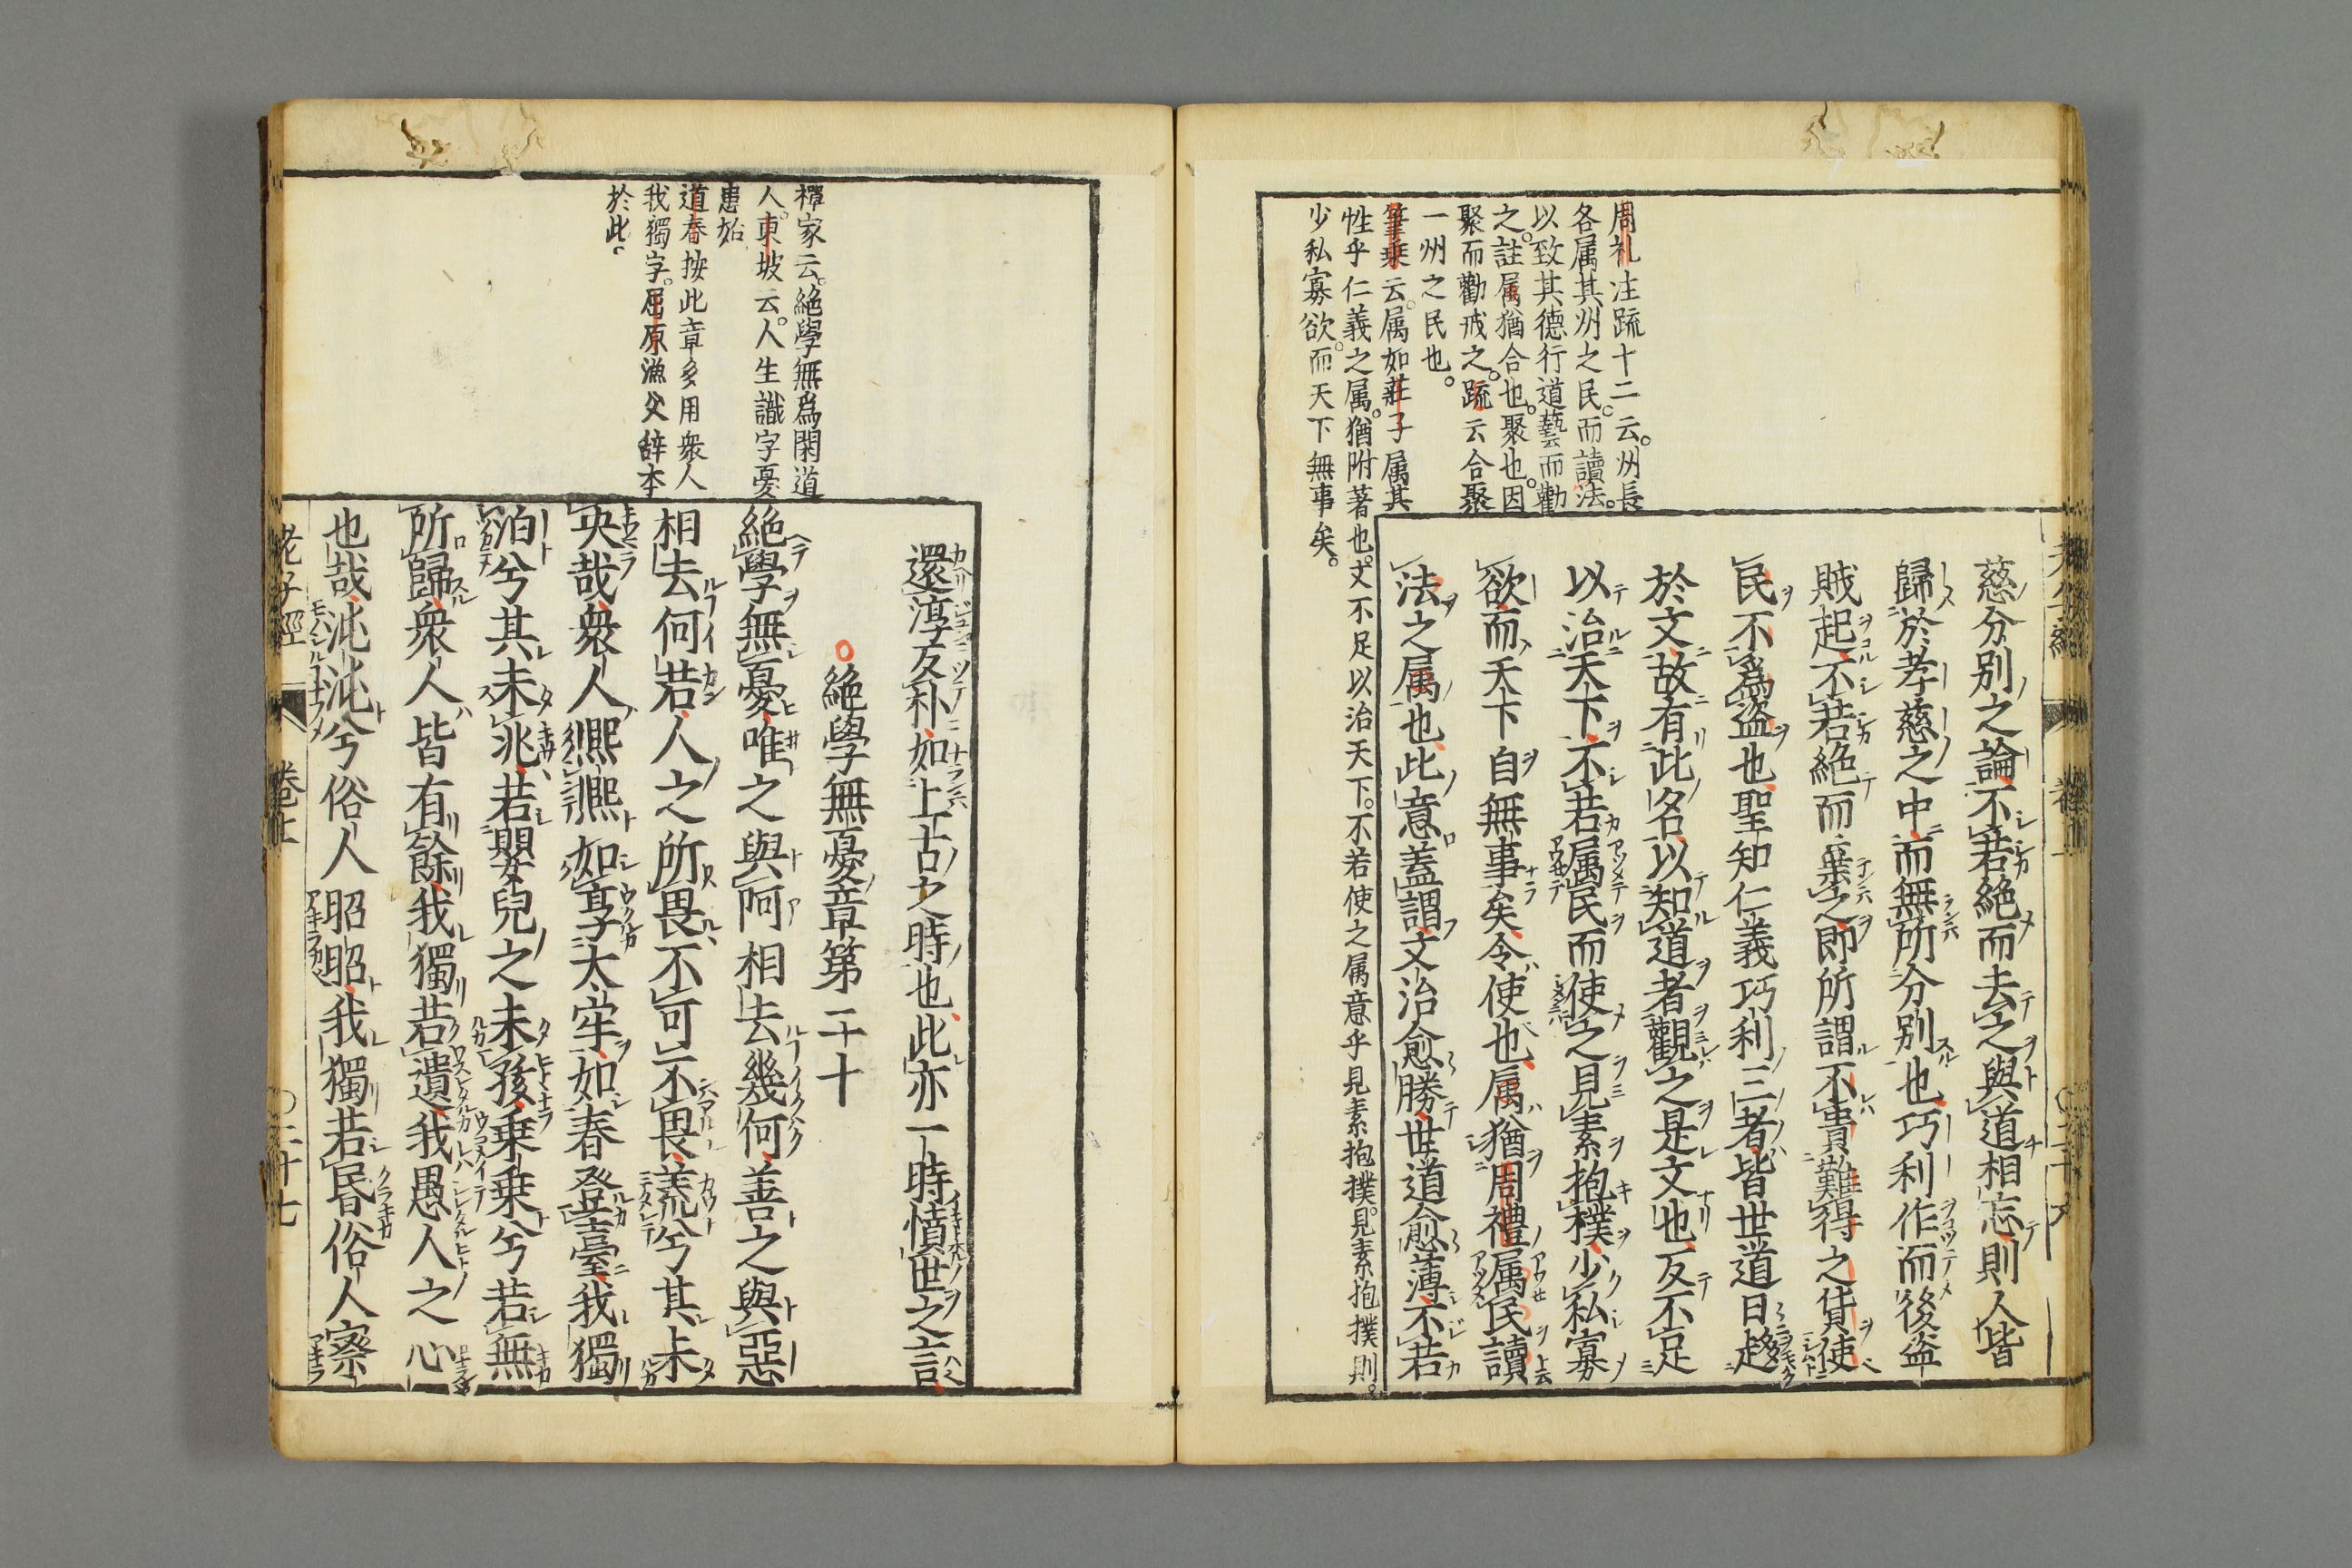 周礼注疏十二云。州長
各属其州之民。而讀法。
以致其德行道藝而勸
之。註属猶合也。聚也。因
聚而勸戒之。疏云合聚
一州之民也。
筆乗云。属如莊子属其
性乎仁義之属。猶附著也。文不足以治天下。不若使之属意乎見素抱撲。見素抱撲則。
少私寡欲。而天下無事矣。
慈分別之論不若絶而去之與道相忘則人皆
歸於孝慈之中而無所分別也巧利作而後盗
賊起不若絶而棄之即所謂不貴難得之貨使
民不爲盗也聖知仁義巧利三者皆世道日趍
於文故有此名以知道者觀之是文也反不足
以治天下不若属民而使之見素抱樸少私寡
欲而天下自無事矣令使也属猶周禮属民讀
法之属也此意蓋謂文治愈勝世道愈薄不若
禪家云。絶學無爲閑道
人。東坡云。人生識字憂
患始
道春按此章多用衆人
我獨字。屈原漁父辞本
於此。
還淳反朴如上古之時也此亦一時憤世之言
絶學無憂章第二十
絶學無憂唯之與阿相去幾何善之與惡
相去何若人之所畏不可不畏荒兮其未
央哉衆人熈熈如享太牢如春登臺我獨
泊兮其未兆若嬰兒之未孩乗乗兮若無
所歸衆人皆有餘我獨若遺我愚人之心
也哉沌沌兮俗人昭昭我獨若昏俗人察
老子經 卷上 〇二十七